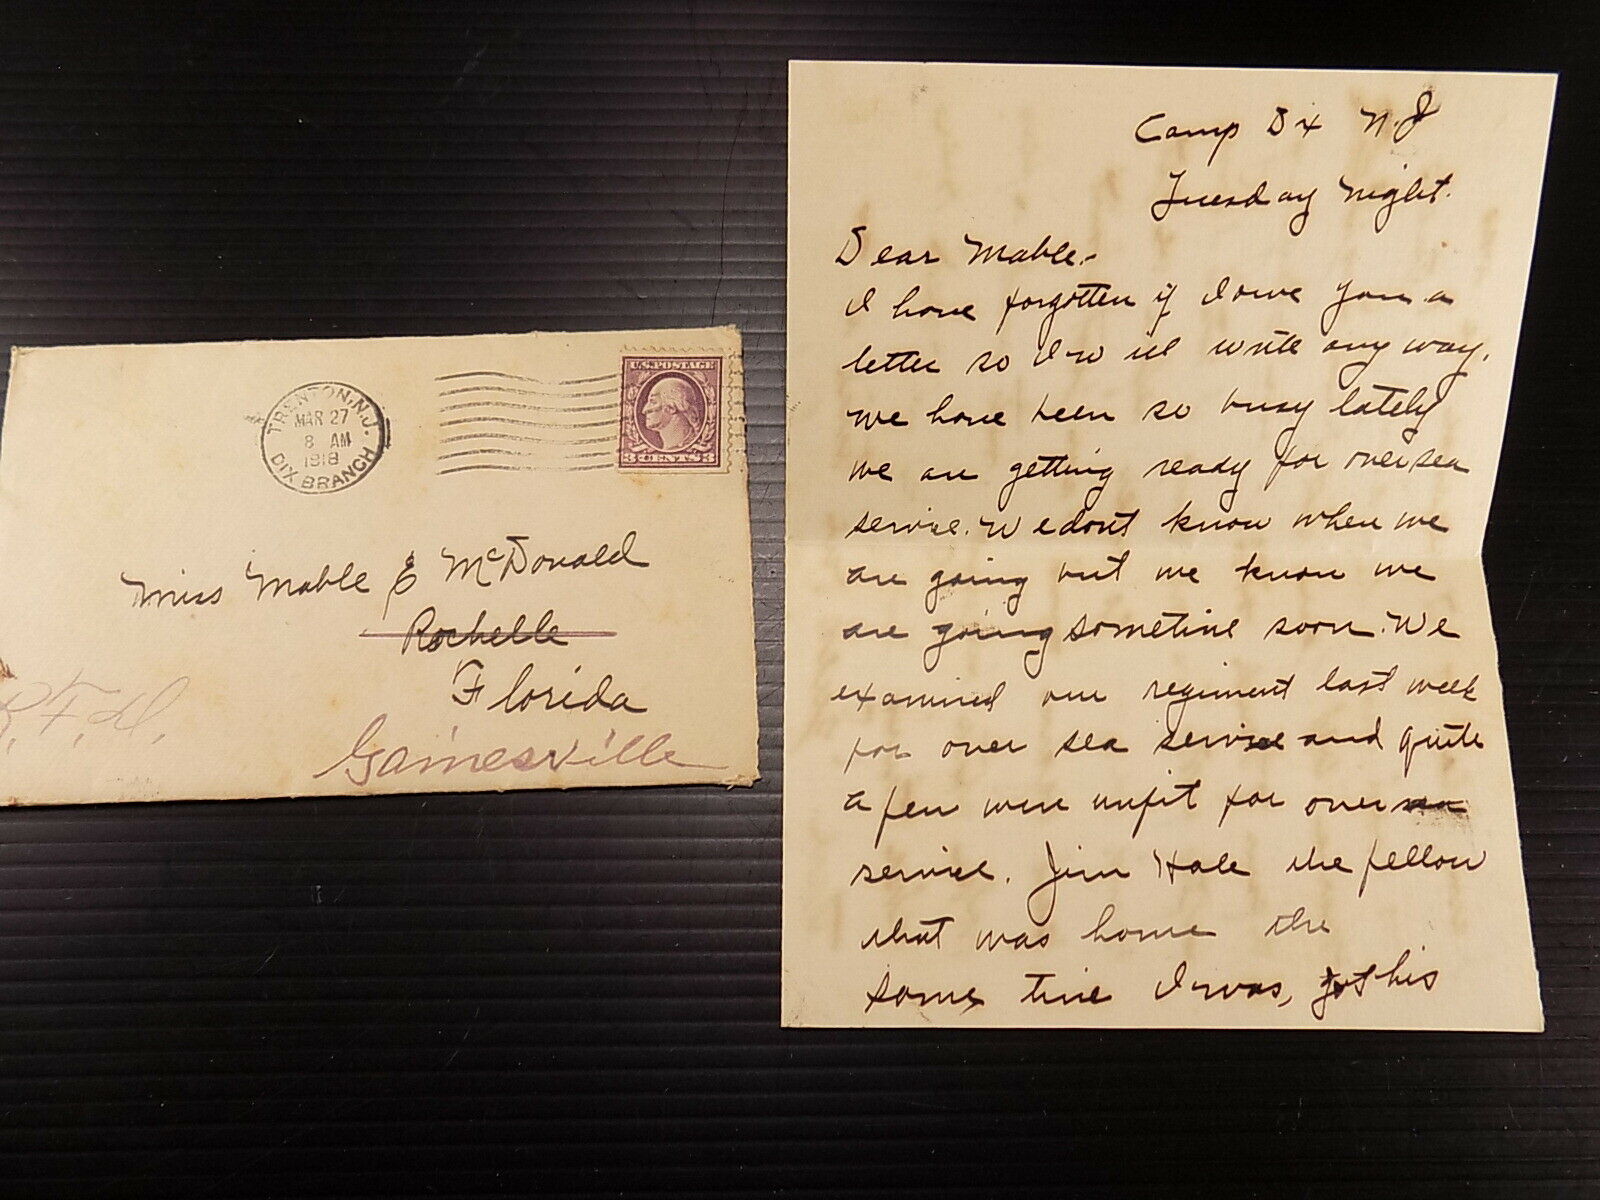 TRENTON, N.J.
MAR 27
8 AM
1918
DIX BRANCH
U.S. POSTAGE
3 CENTS 3
Miss Mable E McDonald
Rochelle
Florida
R.F.D.
Gainesville
Camp Dix N.J
Tuesday Night.
Dear Mable.-
I have forgotten if I owe you a
letter so I will write any way.
We have been so busy lately
we are getting ready for over sea
service. We dont know when we
are going but we know we
are going sometime soon. We
examined our regiment last week
for over sea service and quite
a few were unfit for over sea
service. Jim Hale the fellow
that was home the
same time I was, got his